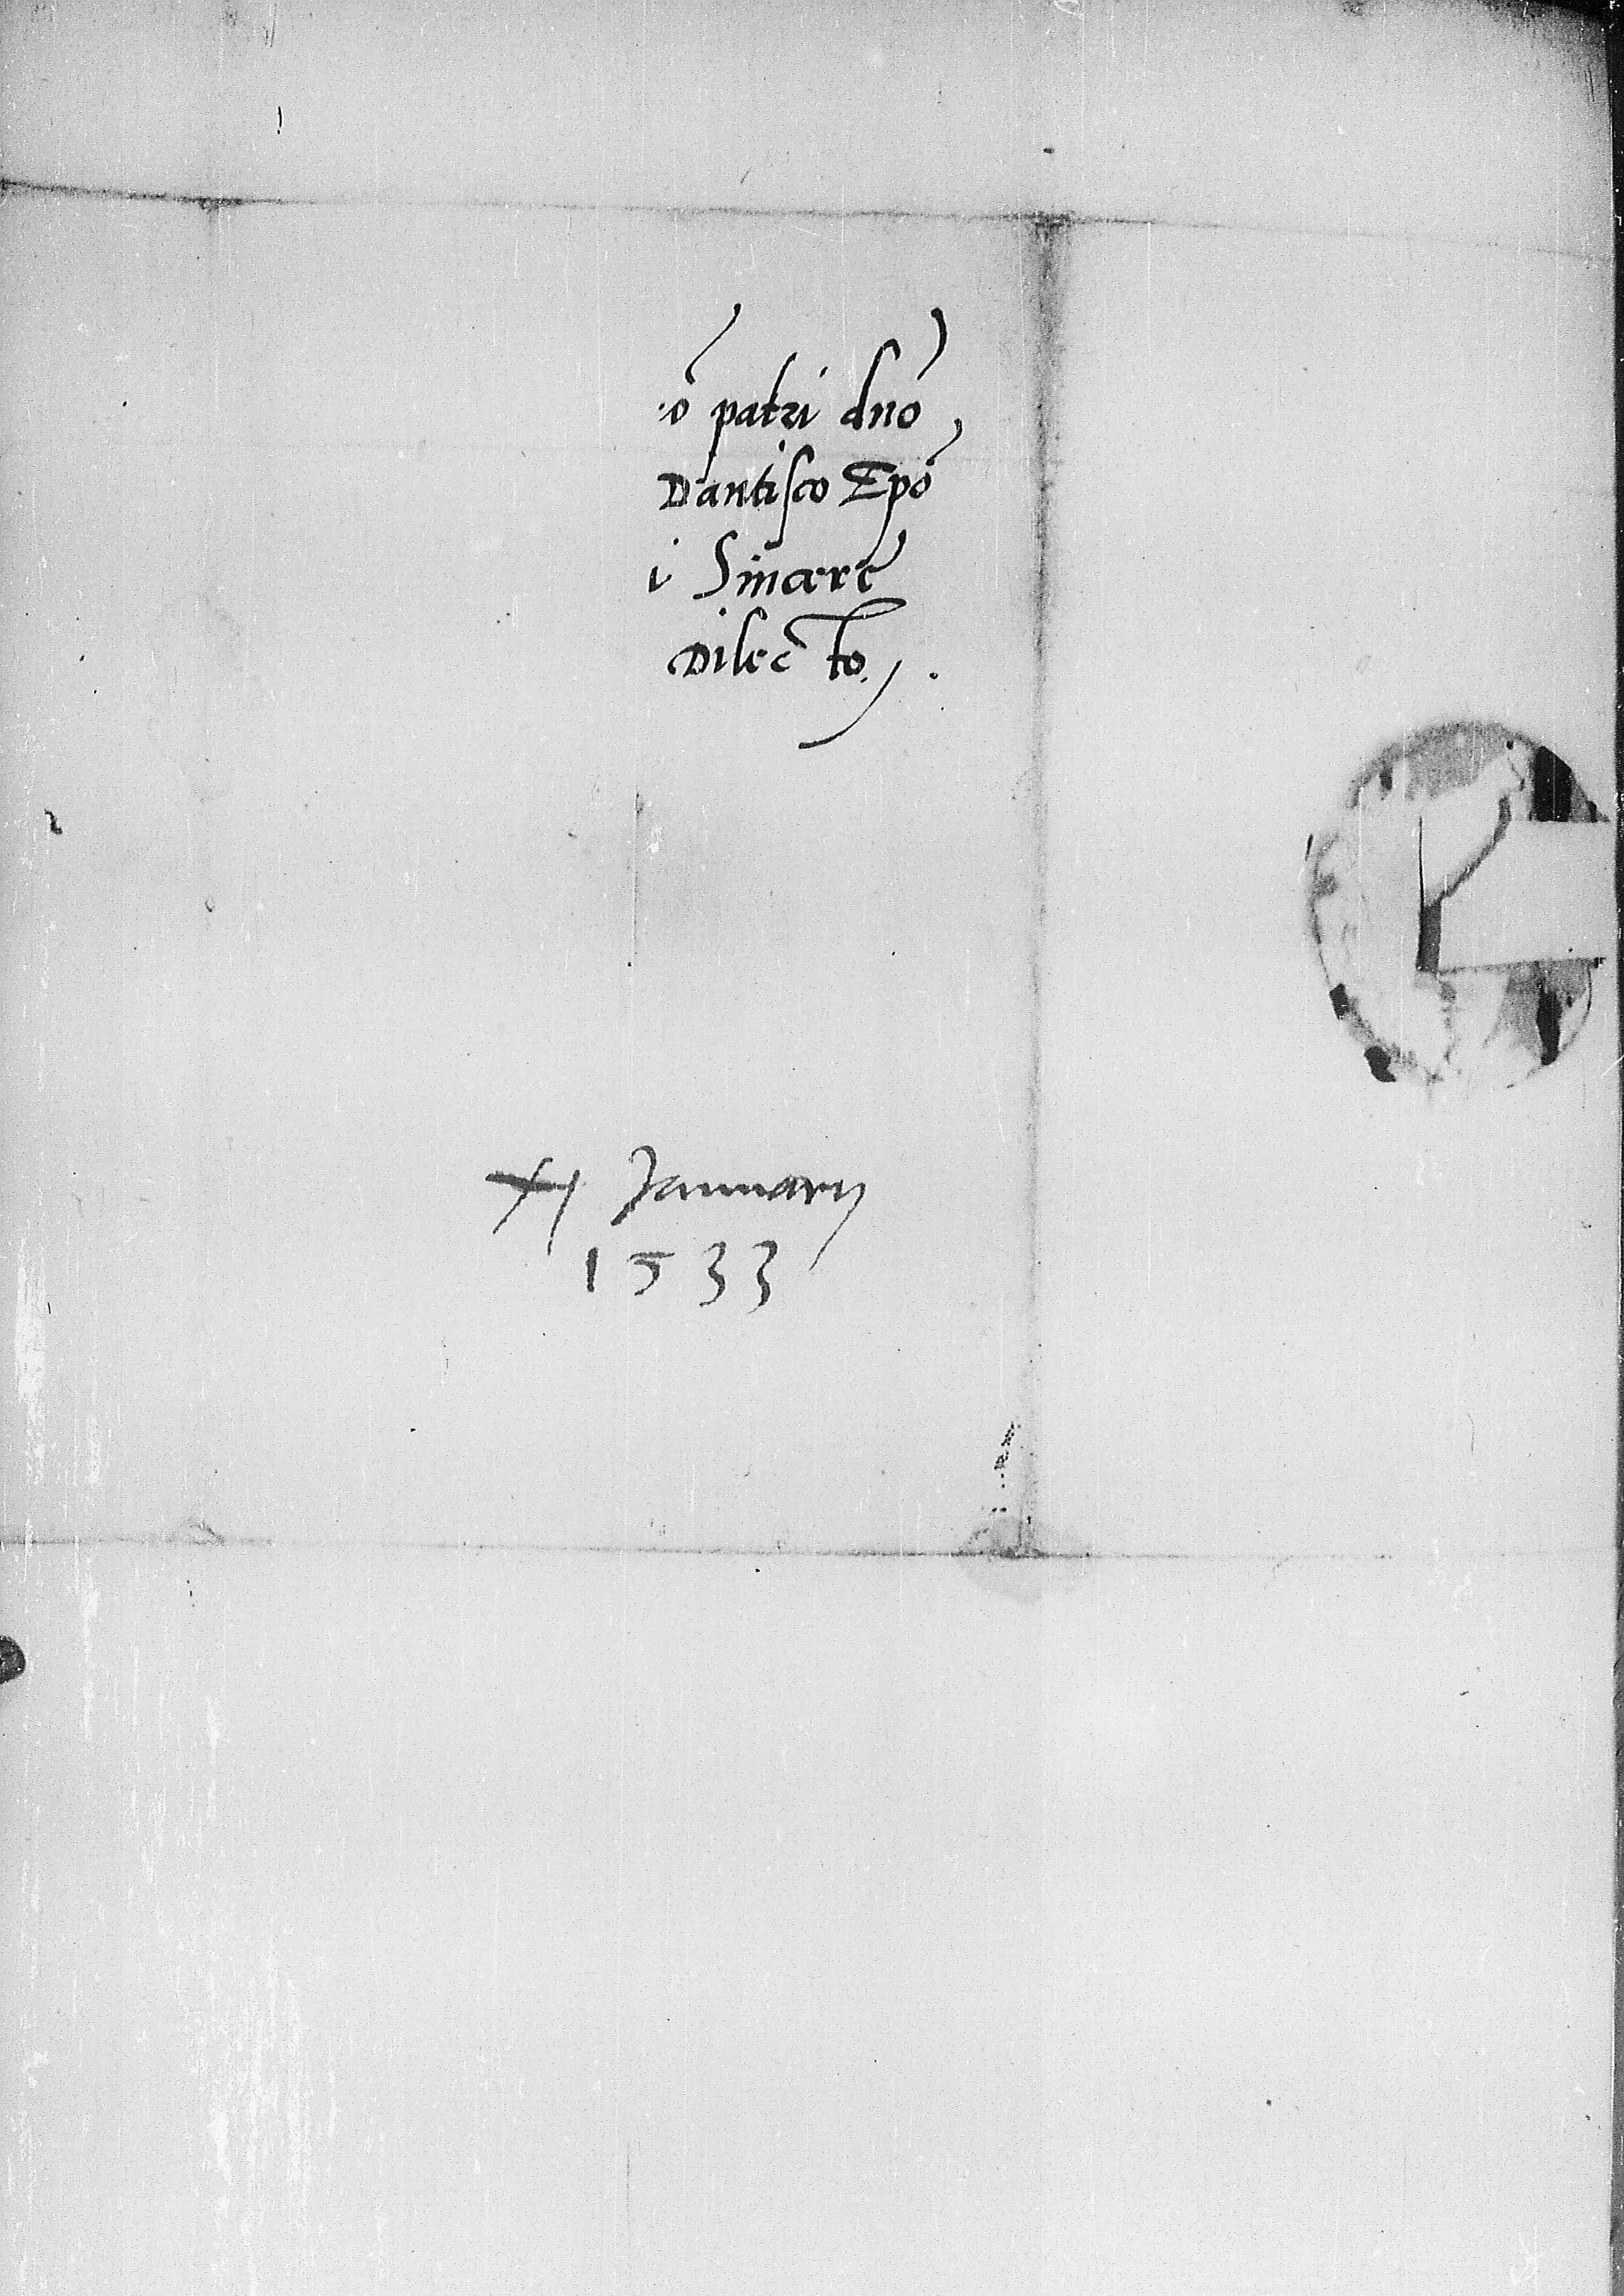 o patri dno
Dantisco Epo
i Sincere
Dilecto.
Januarij
1533